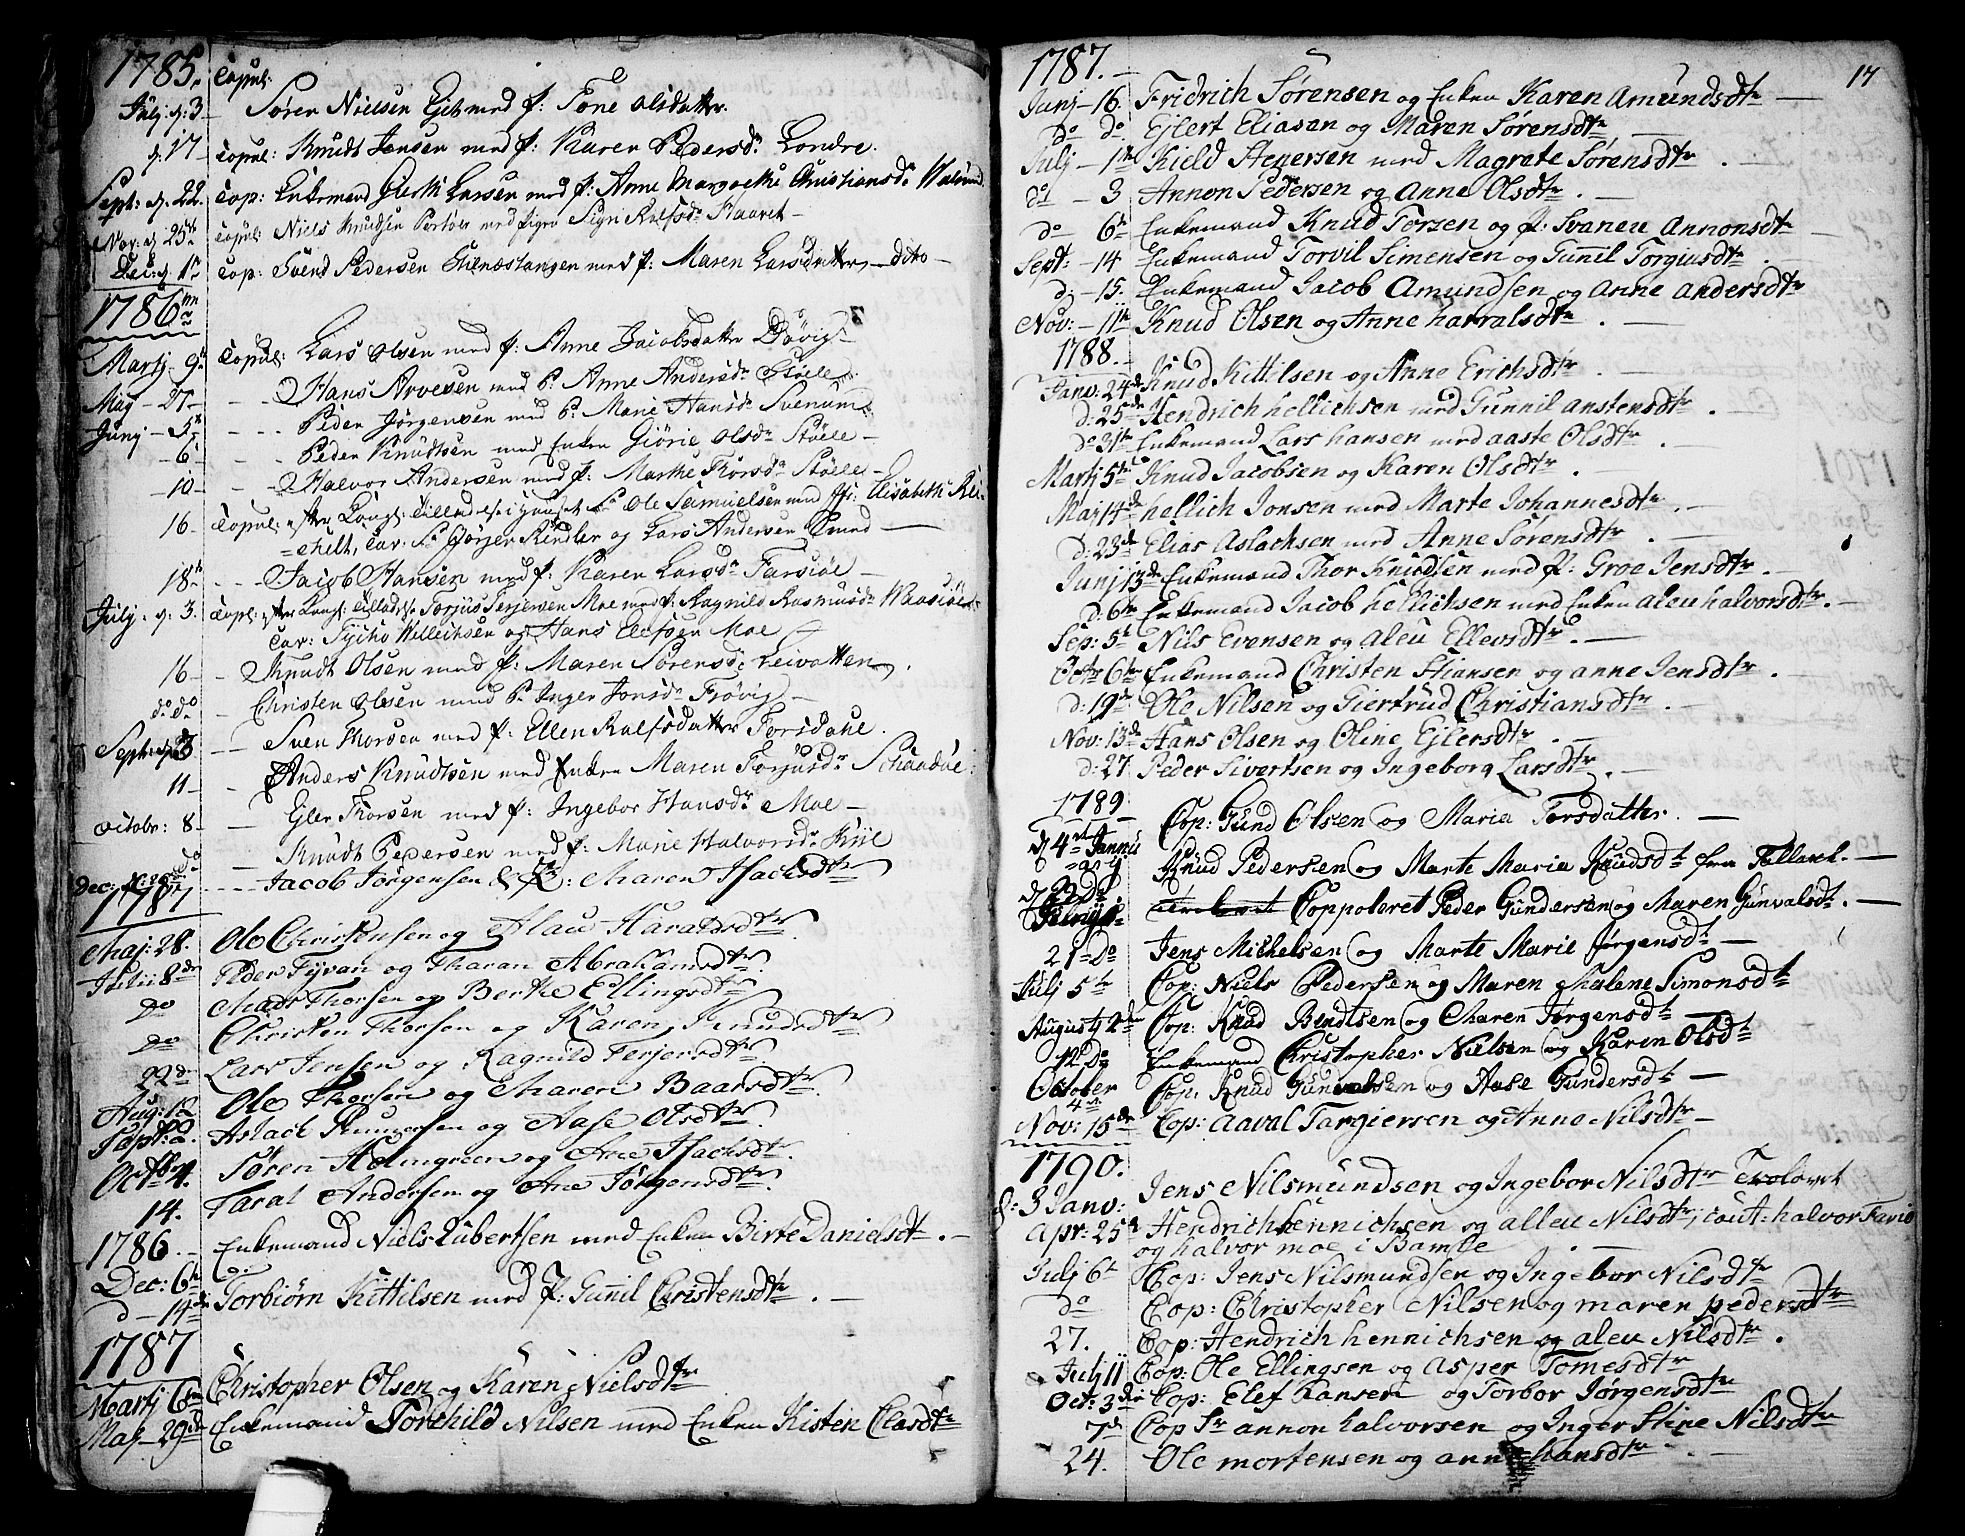 1785. Copul:
Julj d: 3 Søren Nielsen med f: Tone olsdatter.
d. 17 Copul: Knudt Jensen med f: Karen Pedersd: Londre.
Sept: d. 22. Cop: Enkemand Larsen med f: Anne Margrethe Christiansdr
Nov: d 25 Copul: Niels Knudsen med Pigen Sign Rolfsdr Haavet
Dec: d 1 Cop: Svend Pedersen Stenestangen med f: Maren Larsdatter, dito
1786
Martj 9 Copul: Lars Olsen med f: Anne Jacobsdatter Døvig
Maj 27 Hans Arvesen med P. Anne Andersdr Støele
Junj 5 Peder Jørgensen med P. Marie Hansdr Svenum
6 Peder Knudtsen med Enken Giørie Olsdr Støele
10 Halvor Andersen med f: Marthe Thorsdr Støele
16 Copul: efter Kongl: Tilladelse i Huuset Sr Ole Samuelsen med Jfr: Elisabeth Rei-
=chelt, Cav: Sr Jørger Kindler og Lars Andersen
18 Jacob Hansen med f: Karen Larsdr Farsiøe
Julj d. 3. Copl: efter Kongl: Tilladelse Torjus Terjersen Moe med f: Ragnild Rasmusdr
Cav: Tycho Wellechsen og Hans Elefsen Moe
16 Knudt Olsen med f: Maren Sørensd: Leivatten
do do Christen Olsen med P. Inger Jonsdr Trøvig
Septr: d. 3 Sven Thorsen med f: Ellen Rolfsdatter Forsdahl.
11 Anders Knudtsen med Enken Maren Torjusdr
Octobr: 8 Ejler Thorsen med f: Ingebor Hansdr Moe
do Knudt Pedersen med f: Marie Halvorsdr Kiil
Dec: Jacob Jørgensen & f: Maren Isachsdtr
1787
Maj: 28. Ole Christensen og Aleu Haraldsdtr.
Julii 8de Peder Tyvan og Tharan Abrahamsdtr.
do Mads Thorsen og Berthe Ellingsdtr
do Christen Thorsen og Karen Knudsdtr
22de Lars Jensen og Ragnild Terjersdtr.
Aug: 12 Ole Thorsen og Maren Baarsdtr.
Sept: 2. Aslack Runnersen og Aase Olsdtr
Octbr 4. Søren Holmgreen og Ane Isachsdtr.
14. Taral Andersen og Ane Jørgensdtr.
1786.
Dec: 6te Enkemand Niels Lübertsen med Enken Birte Danielsdt.
d 14de Torbiørn Kittilsen med f: Gunil Christensdtr.
1787
Martj 6te Christopher Olsen og Karen Nielsdtr
Maj 29de Enkemand Torchild Nilsen med Enken Kisten Clasdtr
17
1787.
Junj 16. Fridrich Sørensen og Enken Karen Amundsdtr
do do Ejlert Eliasen og Maren Sørensdtr
Julj 1te Kield Stegersen med Magrete Sørensdtr.
do 3 Annon Pedersen og Anne Olsdtr.
do 6te Enkemand Knud Torsen og f: Svaneu Annonsdtr
Sept: 14 Enkemand Torvil Simensen og Gunil Torgiusdtr.
d: 15. Enkemand Jacob Amundsen og Anne andersdtr
Nov: 11te Knud Olsen og Anne harralsdtr.
1788.
Janv: 24de Knud Kittilsen og Anne Erichsdtr.
d: 25de Hendrich hellichsen med Gunnil anstensdtr.
do 31te Enkemand Lars hansen med aaste Olsdtr.
Martj 5te Knud Jacobsen og Karen Olsdtr.
Maj 14de hellich Jonsen med Marte Johannesdtr.
d: 23de Elias Aslachsen med Anne Sørensdtr.
Junj 13de Enkemand Thor Knudsen med f: Groe Jensdtr.
d: 6te Enkemand Jacob hellichsen med Enken aleu halvorsdtr.
Sep: 5te Nils Evensen og aleu Ellevsdtr.
Octr 6te Enkemand Christen Stiansen og anne Jensdtr.
d: 19de Ole Nilsen og Giertrud Christiansdtr.
Nov: 13de Hans Olsen og Oline Ejlersdtr.
d: 27 Peder Sivertsen og Ingeborg Larsdtr.
1789
d 4de Janu=
arj Cop: Gund Olsen og Maria Torsdatter.
d 22 Do Knud Pedersen og Marte Maria Knudsdt fra Tallarek.
Coppoleret Peder Gundersen og Maren Gunvalsdt.
21 Do Jens Michelsen og Marte Marie Jørgensdt
Julj 5te Cop: Niels Pedersen og Maren Malene Simonsdt
Augustj 2den Cop: Knud Bendtsen og Maren Jørgensdt
12 Do Enkemand Christopher Nielsen og Karen Olsdt
October 4de Cop: Knud Gunvalsen og Aase Gundersdt
Nov: 15de Cop: Aaval Targiersen og Anne Nilsdtr
1790.
d: 3 Janv: Jens Nilsmundsen og Ingebor Nilsdtr Trolovet
Apr: 25 Hendrich hennichsen og alleu Nilsdtr, Caut: halvor Fario
og halvor moe i Bamle
Julj 6t Cop: Jens Nilsmundsen og Ingebor Nilsdtr
do Cop: Christopher Nilsen og maren pedersdtr
27. Cop: Hendrich hennichsen og aleu Nilsdtr.
Julj 11 Cop: Ole Ellingsen og Asper Tomesdtr
Oct: 3de Cop: Elef Hansen og Torbor Jørgensdtr
7d Cop Sr annon halvorsen og Inger Stine Nilsdtr
24. Ole mortensen og anne hansdtr